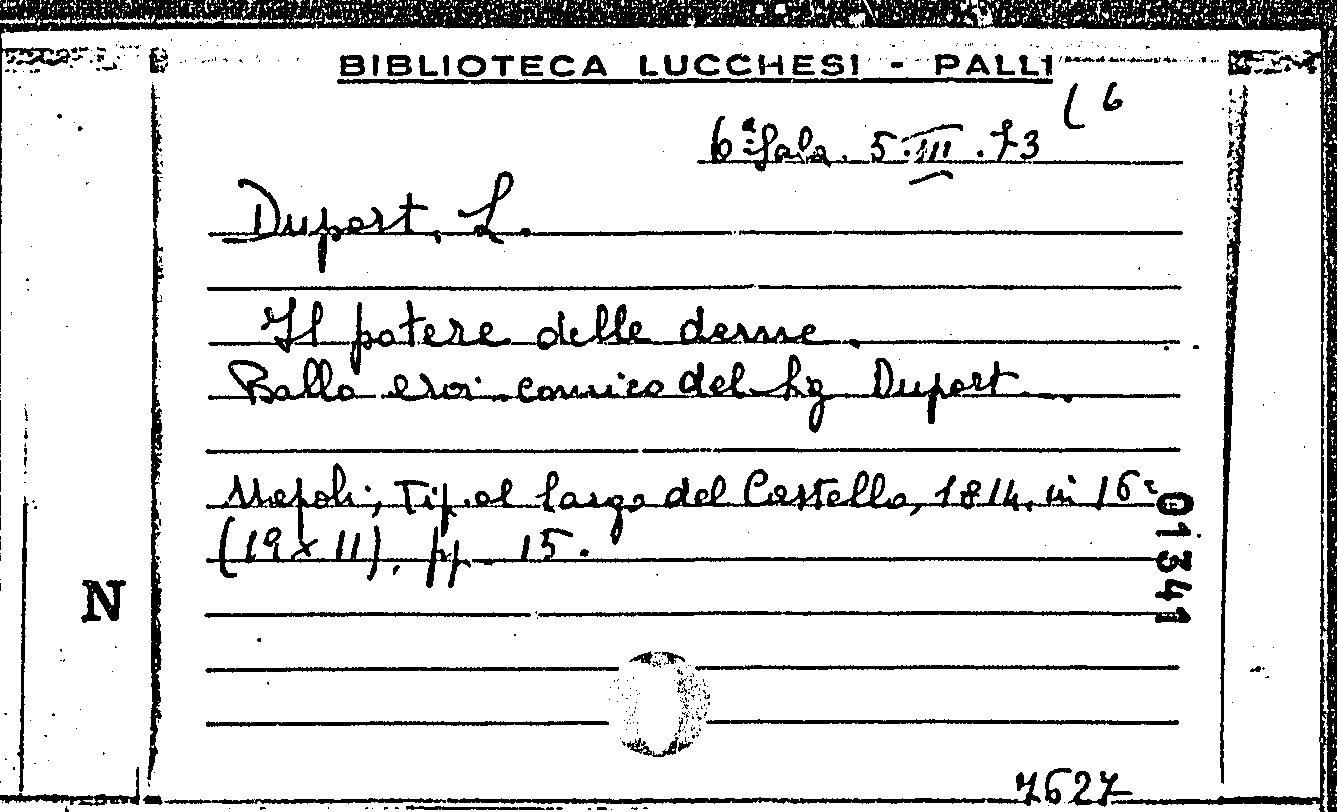 BIBLIOTECA LUCCHESI - PALLI
(6
6ª Sala. 5.III.73
Duport, L.
Il potere delle donne.
Ballo eroi-comico del Sig Duport.
Napoli, Tip. al largo del Castello, 1814. in 16º
(19 x 11). pp. 15.
01341
N
7627